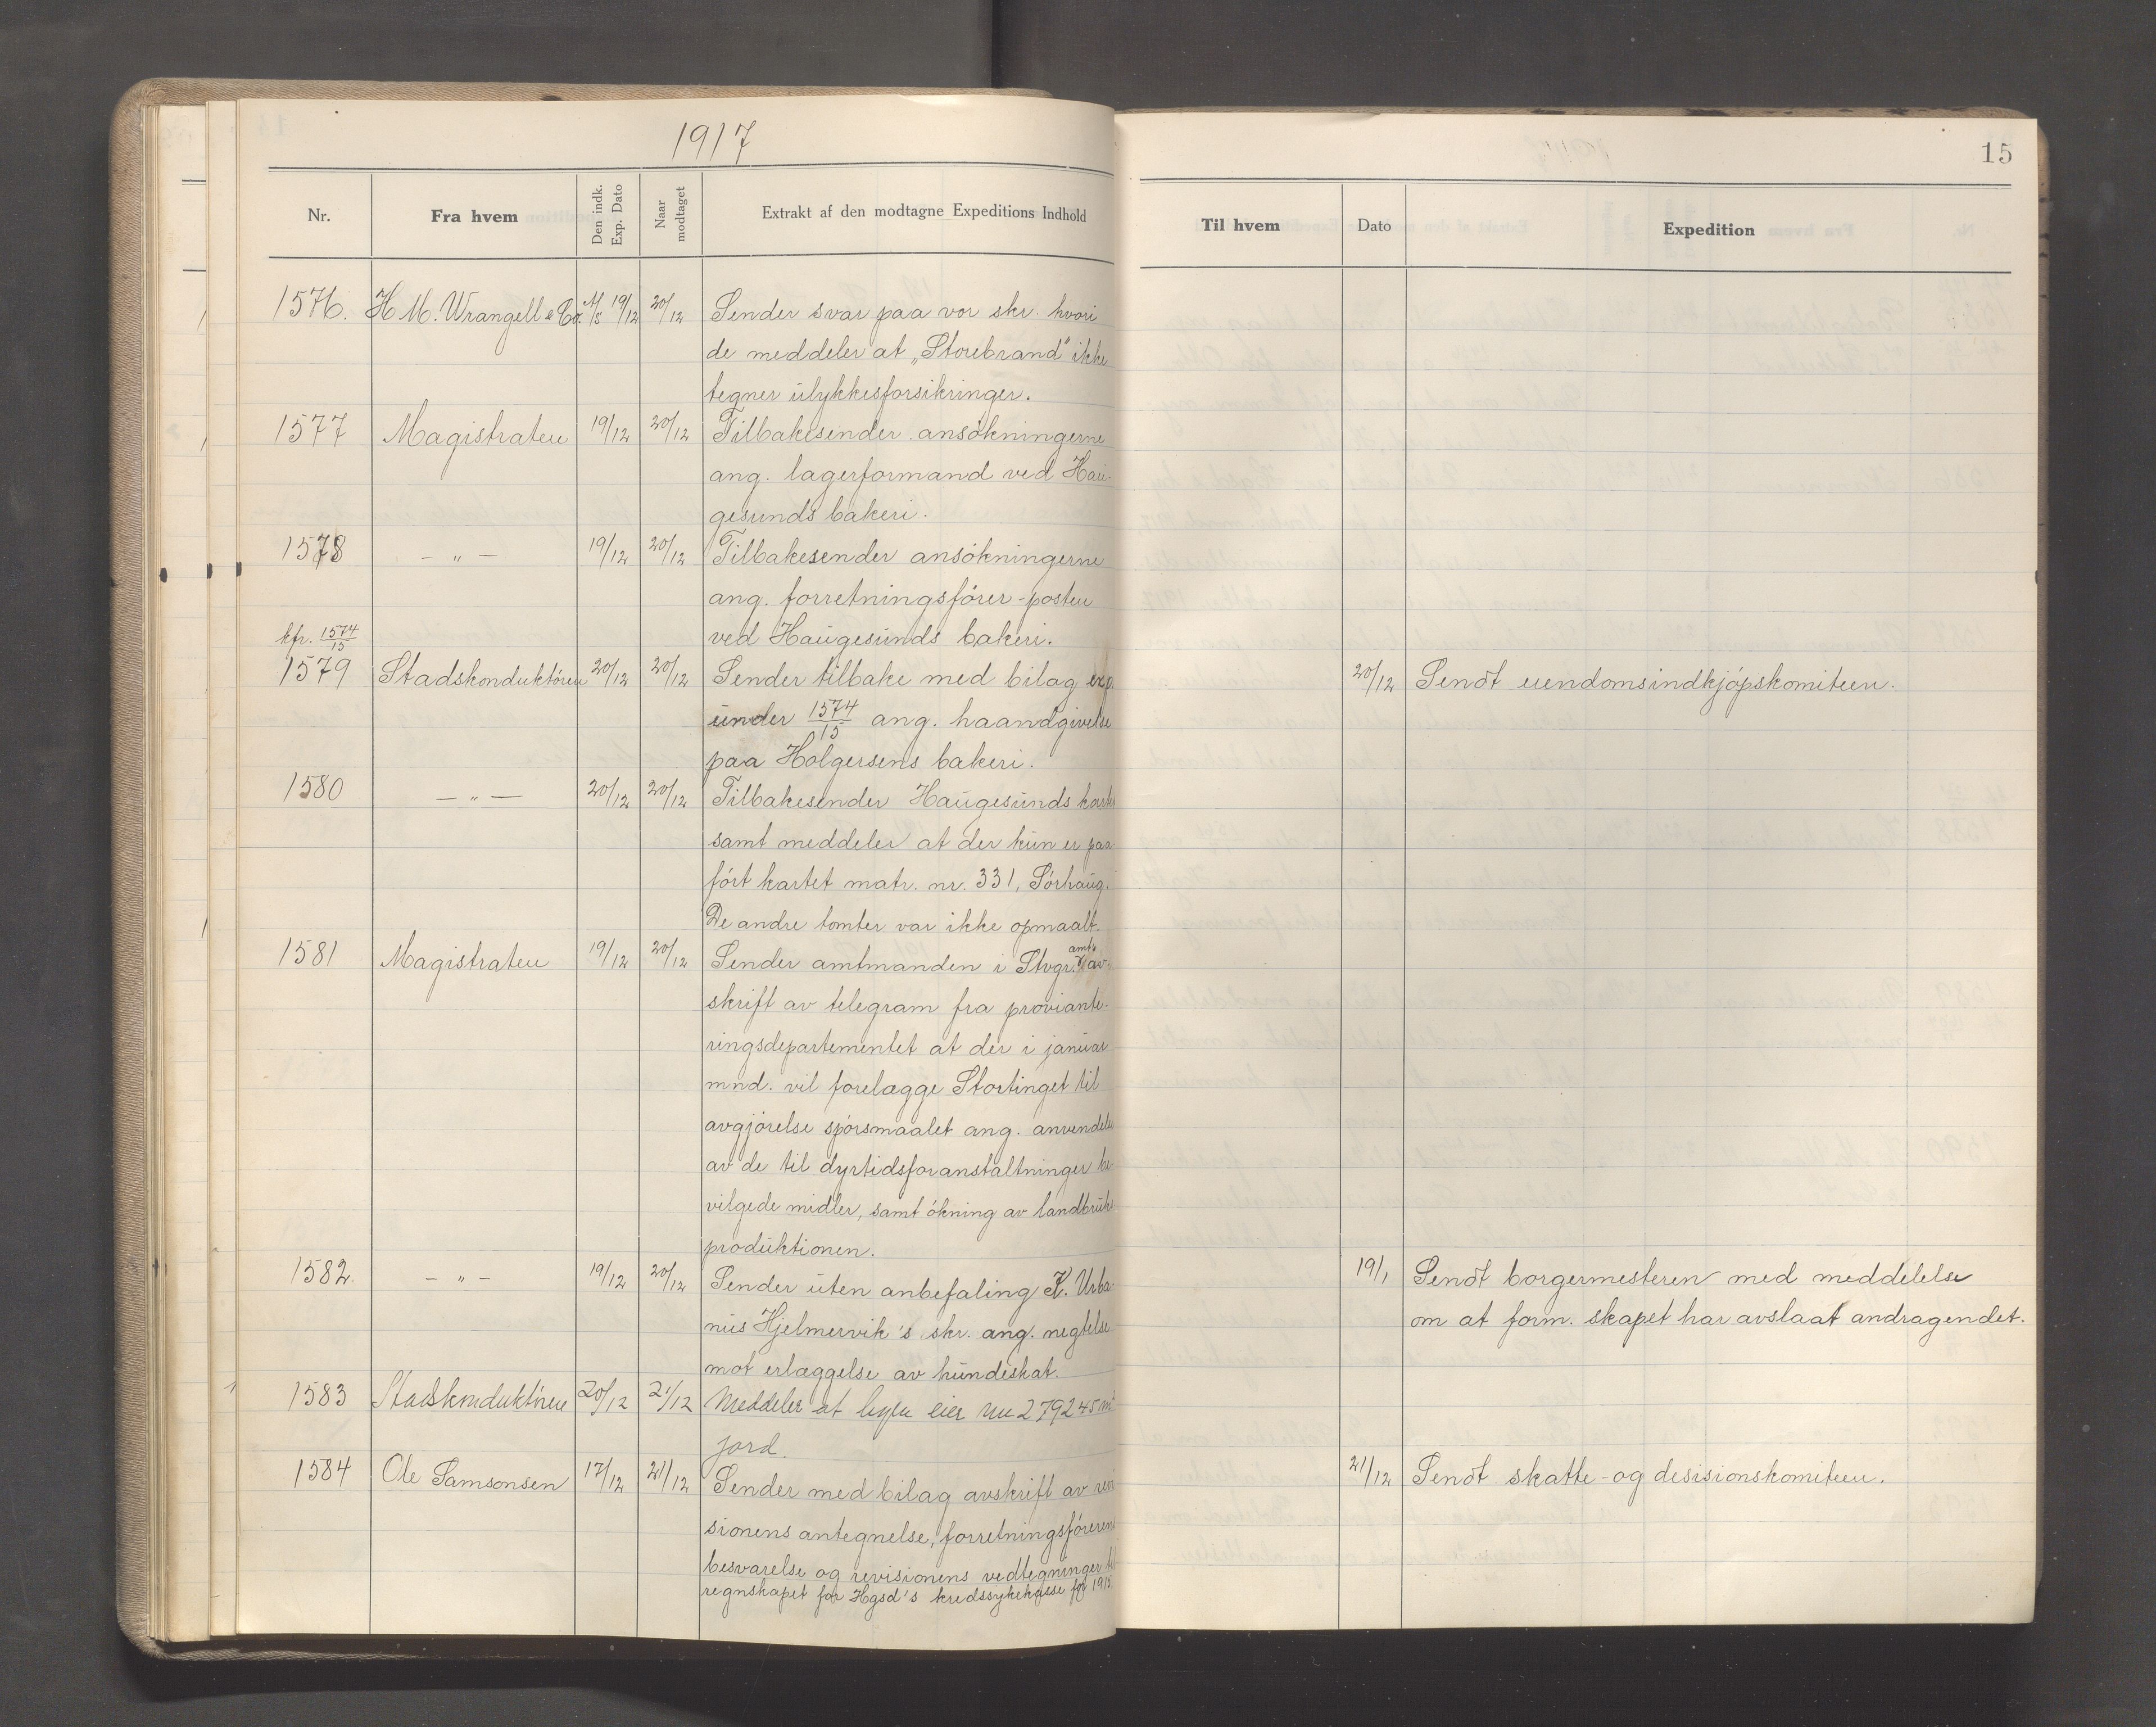 1917
Nr. Fra hvem Den indk. Exp. Dato Naar modtaget Extrakt af den modtagne Expeditions Indhold
1576. H. M. Wrangell & Co. A/S 19/12 20/12 Sender svar paa vor skr. hvori
de meddeler at „Storebrand" ikke
tegner ulykkesforsikringer.
1577 Magistraten 19/12 20/12 Tilbakesender ansökningerne
ang. lagerformand ved Hau-
gesunds bakeri.
1578 — „ — 19/12 20/12 Tilbakesender ansökningerne
ang. forretningsförer-posten
kfr. 1574/15 ved Haugesunds bakeri.
1579 Stadskonduktören 20/12 20/12 Sender tilbake med bilag exp.
under 1574/15 ang. haandgivelse
paa Holgersens bakeri.
1580 — „ — 20/12 20/12 Tilbakesender Haugesunds
samt meddeler at der kun er paa
fört kartet matr. nr. 331, Sörhaug.
De andre tomter var ikke opmaalt.
1581 Magistraten 19/12 20/12 Sender amtmanden i Stvgr. amts av-
skrift av telegram fra proviante-
ringsdepartementet at der i januar
mnd. vil forelægge Stortinget til
avgjörelse spörsmaalet ang. anvendelse
av de til dyrtidsforanstaltninger be
vilgede midler, samt ökning av landbruks
produktionen.
1582. — „ — 19/12 20/12 Sender uten anbefaling K. Urba-
nius Hjelmervik's skr. ang. negtelse
mot erlæggelse av hundeskat.
1583 Stadskonduktören 20/12 21/12 Meddeler at byen eier nu 279245 m²
jord.
1584 Ole Samsonsen 17/12 21/12 Sender med bilag avskrift av revi
sionens antegnelse, forretningsförerens
besvarelse og revisionens vedtegninger til
regnskapet for Hgsd's kredssykekasse for 1915.
15
Til hvem Dato Expedition
20/12 Sendt eiendomsindkjöpskomiteen.
19/1 Sendt borgermesteren med meddelelse
om at form. skapet har avslaat andragendet.
21/12 Sendt skatte- og desisionskomiteen.